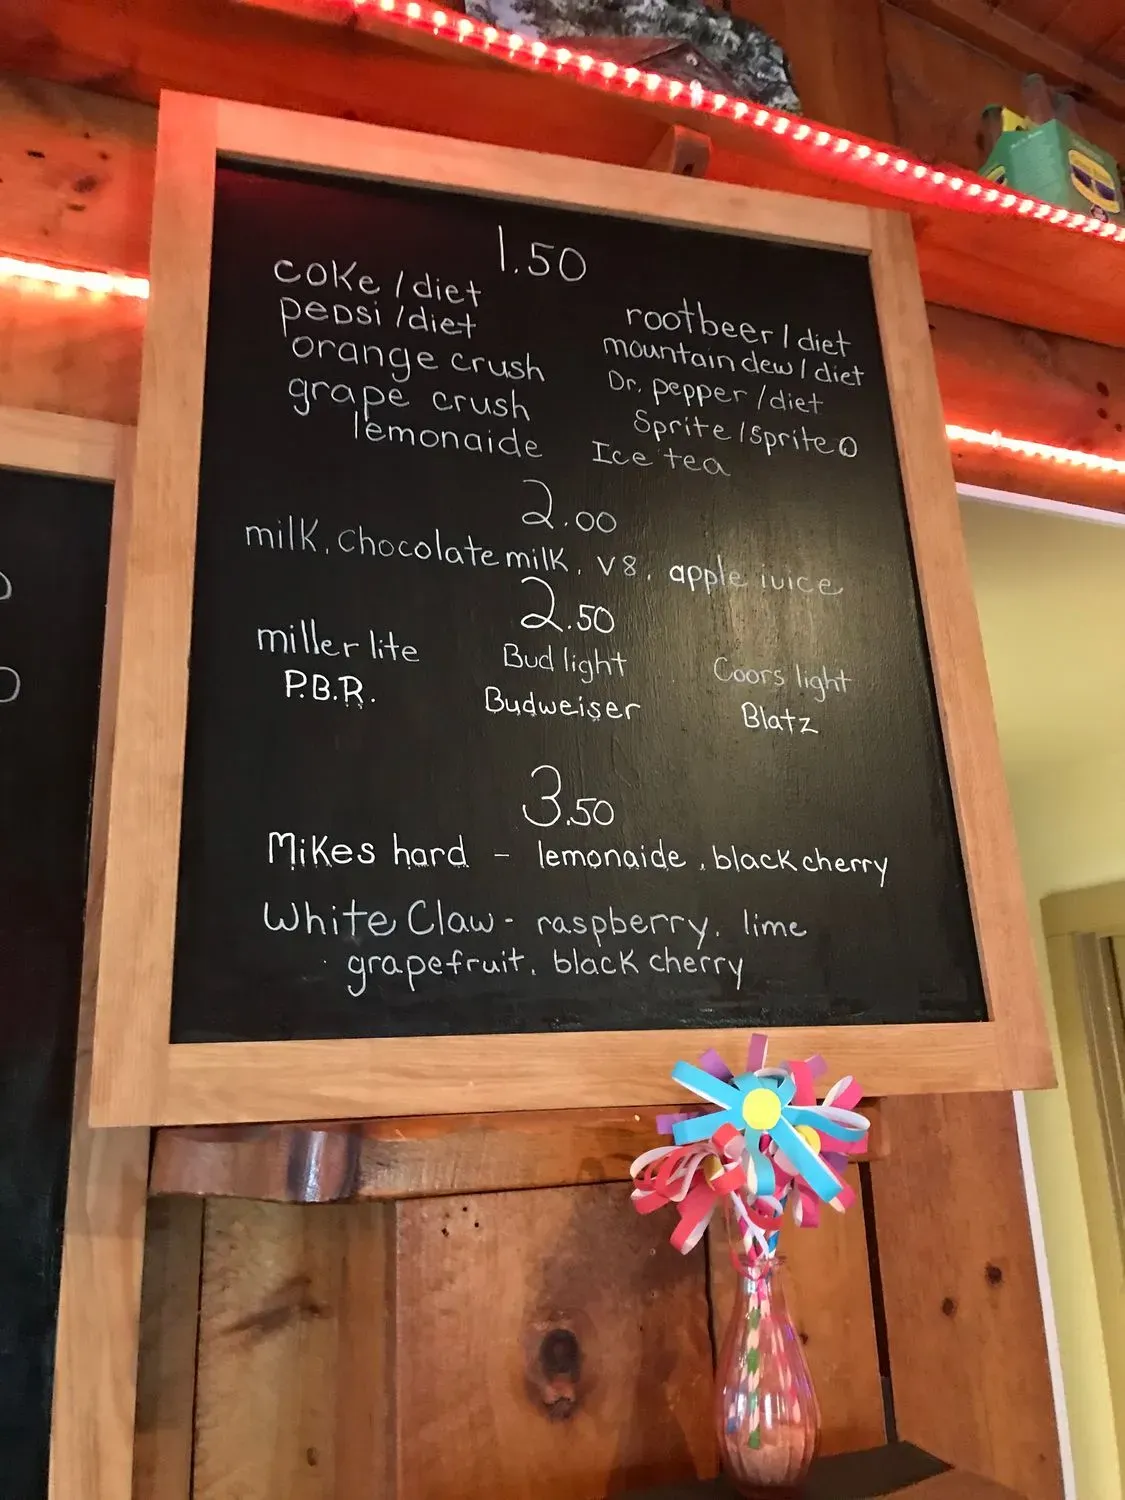 1.50
coke / diet
pepsi / diet
orange crush
grape crush
lemonaide
rootbeer / diet
mountain dew / diet
Dr. pepper / diet
Sprite / Sprite 0
Ice tea
2.00
milk, chocolate milk, v8, apple juice
2.50
miller lite Bud light Coors light
P.B.R. Budweiser Blatz
3.50
Mikes hard - lemonaide, black cherry
White Claw - raspberry, lime
grapefruit, black cherry